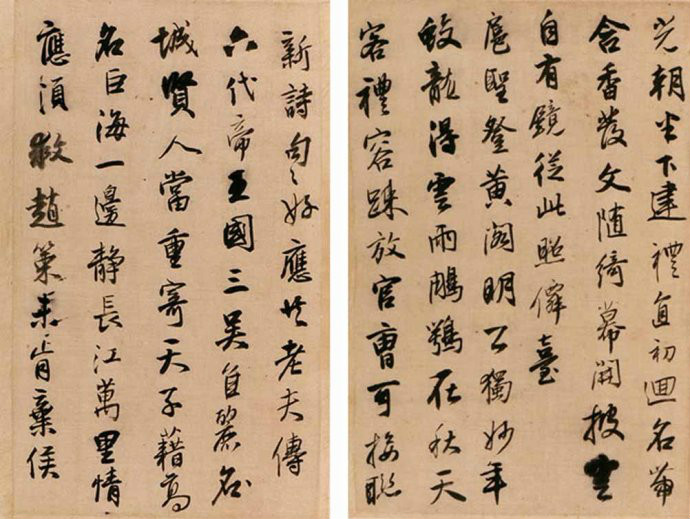 朝 下建禮直初迴名
含香發文隨綺幕開披雲
自有鏡從此照僊臺
扈聖登黃閣明公獨妙年
蛟龍得雲雨鵰鶚在秋天
客禮容踈放官曹可接聯
新詩句々好應任老夫傳
六代帝王國三吳自麗名
城賢人當重寄天子藉高
名巨海一邊靜長江萬里情
應須救趙策未肯棄侯